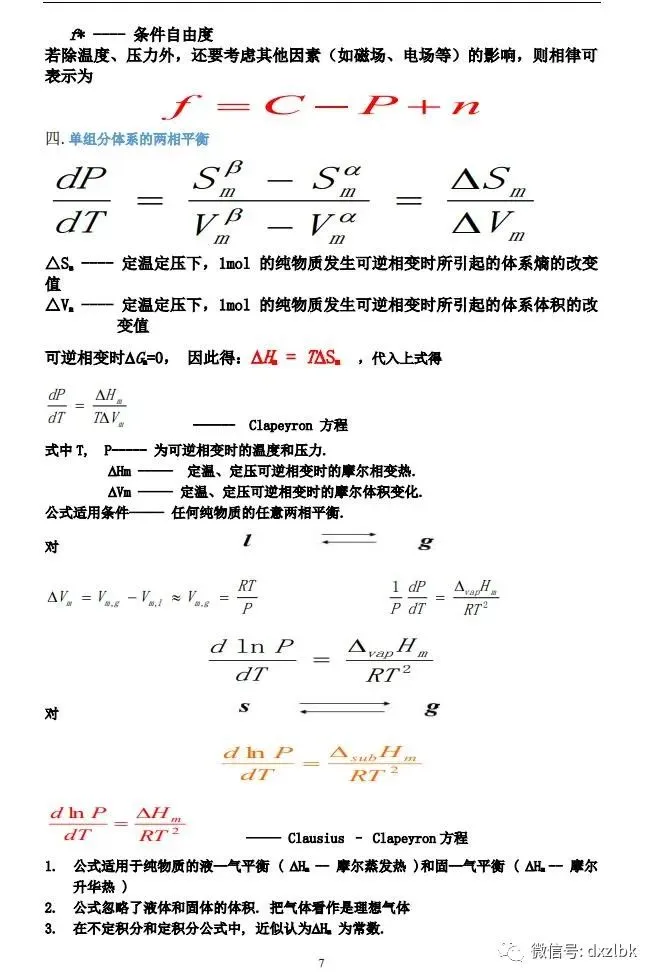 f* ---- 条件自由度
若除温度、压力外，还要考虑其他因素（如磁场、电场等）的影响，则相律可
表示为
f = C − P + n
四. 单组分体系的两相平衡
dP/dT = (S_m^β − S_m^α)/(V_m^β − V_m^α) = ΔS_m/ΔV_m
△Sₘ ---- 定温定压下，1mol 的纯物质发生可逆相变时所引起的体系熵的改变
值
△Vₘ ---- 定温定压下，1mol 的纯物质发生可逆相变时所引起的体系体积的改
变值
可逆相变时ΔGₘ=0， 因此得：ΔHₘ = TΔSₘ ，代入上式得
dP/dT = ΔH_m/(TΔV_m)
—— Clapeyron 方程
式中T, P---- 为可逆相变时的温度和压力.
ΔHm —— 定温、定压可逆相变时的摩尔相变热.
ΔVm —— 定温、定压可逆相变时的摩尔体积变化.
公式适用条件—— 任何纯物质的任意两相平衡.
对 l ⇌ g
ΔV_m = V_m,g − V_m,l ≈ V_m,g = RT/P 1/P dP/dT = Δ_vap H_m/RT²
d ln P/dT = Δ_vap H_m/RT²
对 s ⇌ g
d ln P/dT = Δ_sub H_m/RT²
d ln P/dT = ΔH_m/RT²
—— Clausius – Clapeyron方程
1. 公式适用于纯物质的液—气平衡 ( ΔHₘ -- 摩尔蒸发热 )和固—气平衡 ( ΔHₘ -- 摩尔
升华热 )
2. 公式忽略了液体和固体的体积. 把气体看作是理想气体
3. 在不定积分和定积分公式中, 近似认为ΔHₘ 为常数.
微信号: dxzlbk
7